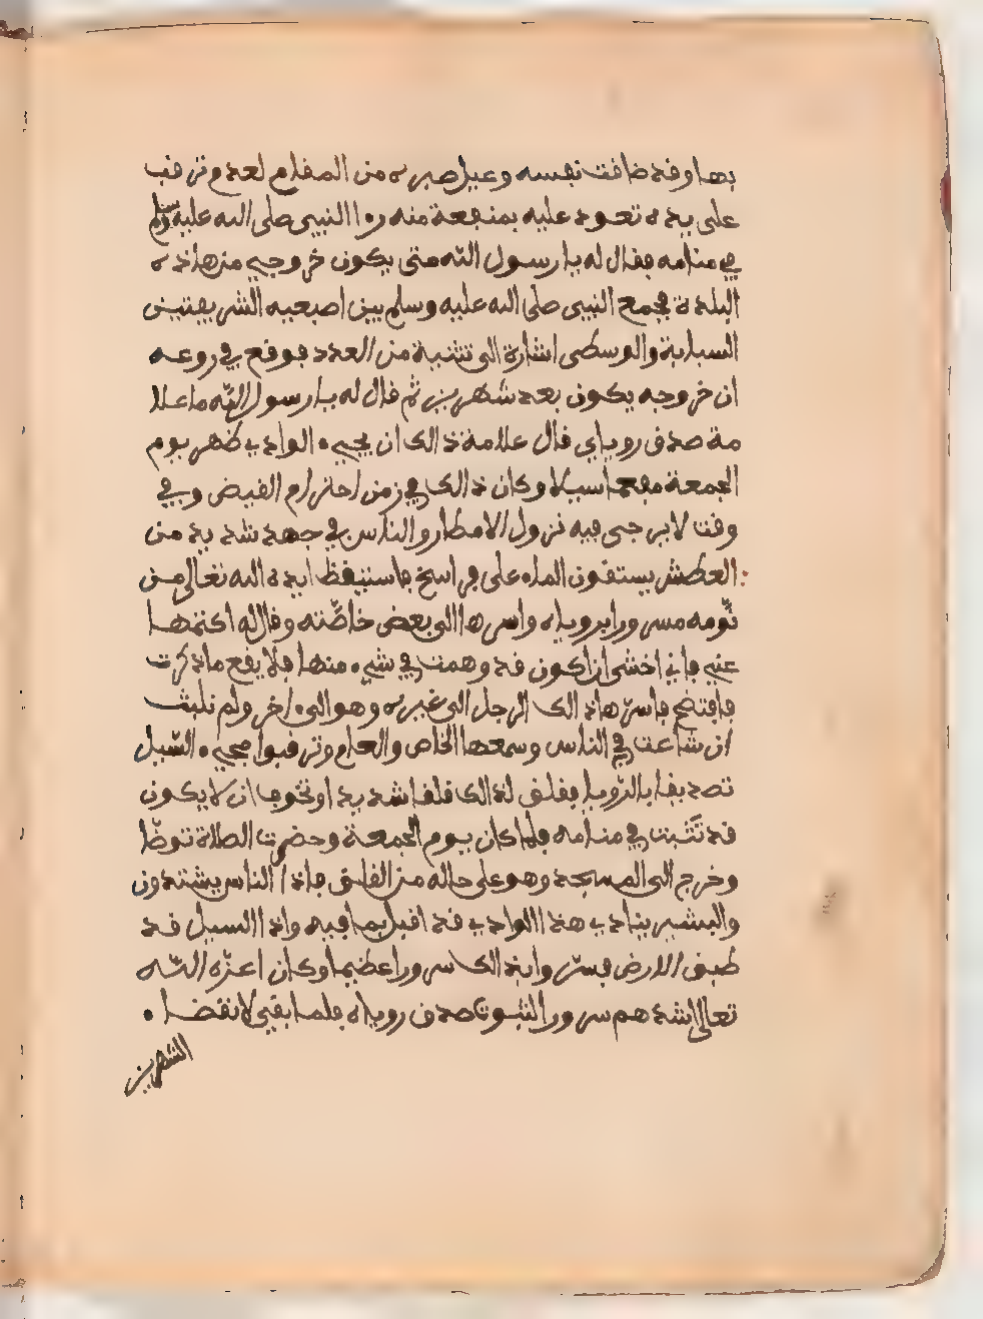 بها وقد ضاقت نفسه وعيل صبره من المقام لعدم ترقب
على يده تعود عليه بمنفعة منه رءا النبي صلى الله عليه وسلم
في منامه فقال له يا رسول الله متى يكون خروجي من هاذه
البلدة فجمع النبي صلى الله عليه وسلم بين اصبعيه الشريفتين
السبابة والوسطى اشارة الى تثنية من العدد فوقع في روعه
ان خروجه يكون بعد شهرين ثم قال له يا رسول الله ما علا
مة صدق روياي قال علامة ذالك ان يجيء الوادي ظهر يوم
الجمعة مفعما سيلا وكان ذالك في زمن احترام الفيض وفي
وقت لا يرجى فيه نزول الامطار والناس في جهد شديد من
العطش يستقون الماء على فراسخ فاستيقظ ايده الله تعالى من
نومه مسرورا برؤياه واسرها الى بعض خاصته وقال له اكتمها
عني فاني اخشى ان اكون قد وهمت في شيء منها فلا يقع ما ذكرت
فافتضح فاسر هاذالك الرجل الى غيره وهو الى ءاخر ولم تلبث
ان شاعت في الناس وسمعها الخاص والعام وترقبوا مجيء السيل
تصديقا بالرويا فقلق لذالك قلقا شديدا وتخوف ان لا يكون
قد تثبت في منامه فلما كان يوم الجمعة وحضرت الصلاة توضأ
وخرج الى المسجد وهو على حاله من القلق فاذا الناس يشتدون
والبشير ينادي هذا الوادي قد اقبل بما فيه واذا السيل قد
طبق الارض فسر وابذالك سرورا عظيما وكان اعزه الله
تعالى اشدهم سرورا لثبوت صدق روياه فلما بقي لانقضاء
الشهرين